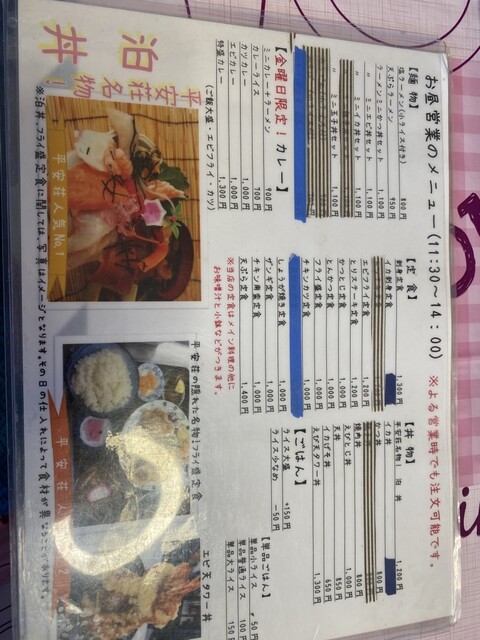 お昼営業のメニュー(11:30〜14:00)
※よる営業時でも注文可能です。
【麺物】
塩ラーメン(小ライス付き) 800円
天ぷらラーメン 950円
ラーメンミニかつ丼セット 1,100円
〃 ミニエビ丼セット 1,100円
〃 ミニイカ丼セット
〃 ミニ玉子丼セット 1,100円
【金曜日限定!カレー】
ミニカレー+ラーメン 900円
カレーライス 700円
カツカレー 1,000円
エビカレー 1,000円
特盛カレー 1,300円
(ご飯大盛・エビフライ・カツ)
【定食】
刺身定食 1,300円
イカ刺身定食
エビフライ定食 1,200円
とりステーキ定食 1,200円
かつとじ定食 1,000円
とんかつ定食 1,000円
フライ盛定食 1,000円
チキンカツ定食 1,000円
しょうが焼き定食 1,000円
ザンギ定食 1,000円
チキン南蛮定食 1,000円
天ぷら定食 1,400円
※当店の定食はメイン料理の他に
お味噌汁と小鉢などがつきます。
【丼物】
平安荘名物! 泊丼 1,200円
イカ丼
かつ丼 800円
焼肉丼 800円
えびとじ丼 1,000円
天丼 850円
イカげそ丼 650円
えび天タワー丼 1,300円
【ごはん】
ライス大盛 +150円
ライス少なめ -50円
【単品ごはん】
単品小ライス ¥50円
単品普通ライス 100円
単品大ライス 150円
平安荘名物!
泊丼
平安荘人気No.1
平安荘の隠れた名物!フライ盛定食
平安荘人
エビ天タワー丼
※泊丼、フライ盛定食に関しては、写真はイメージとなります。その日の仕入れによって食材が異なることがあります。